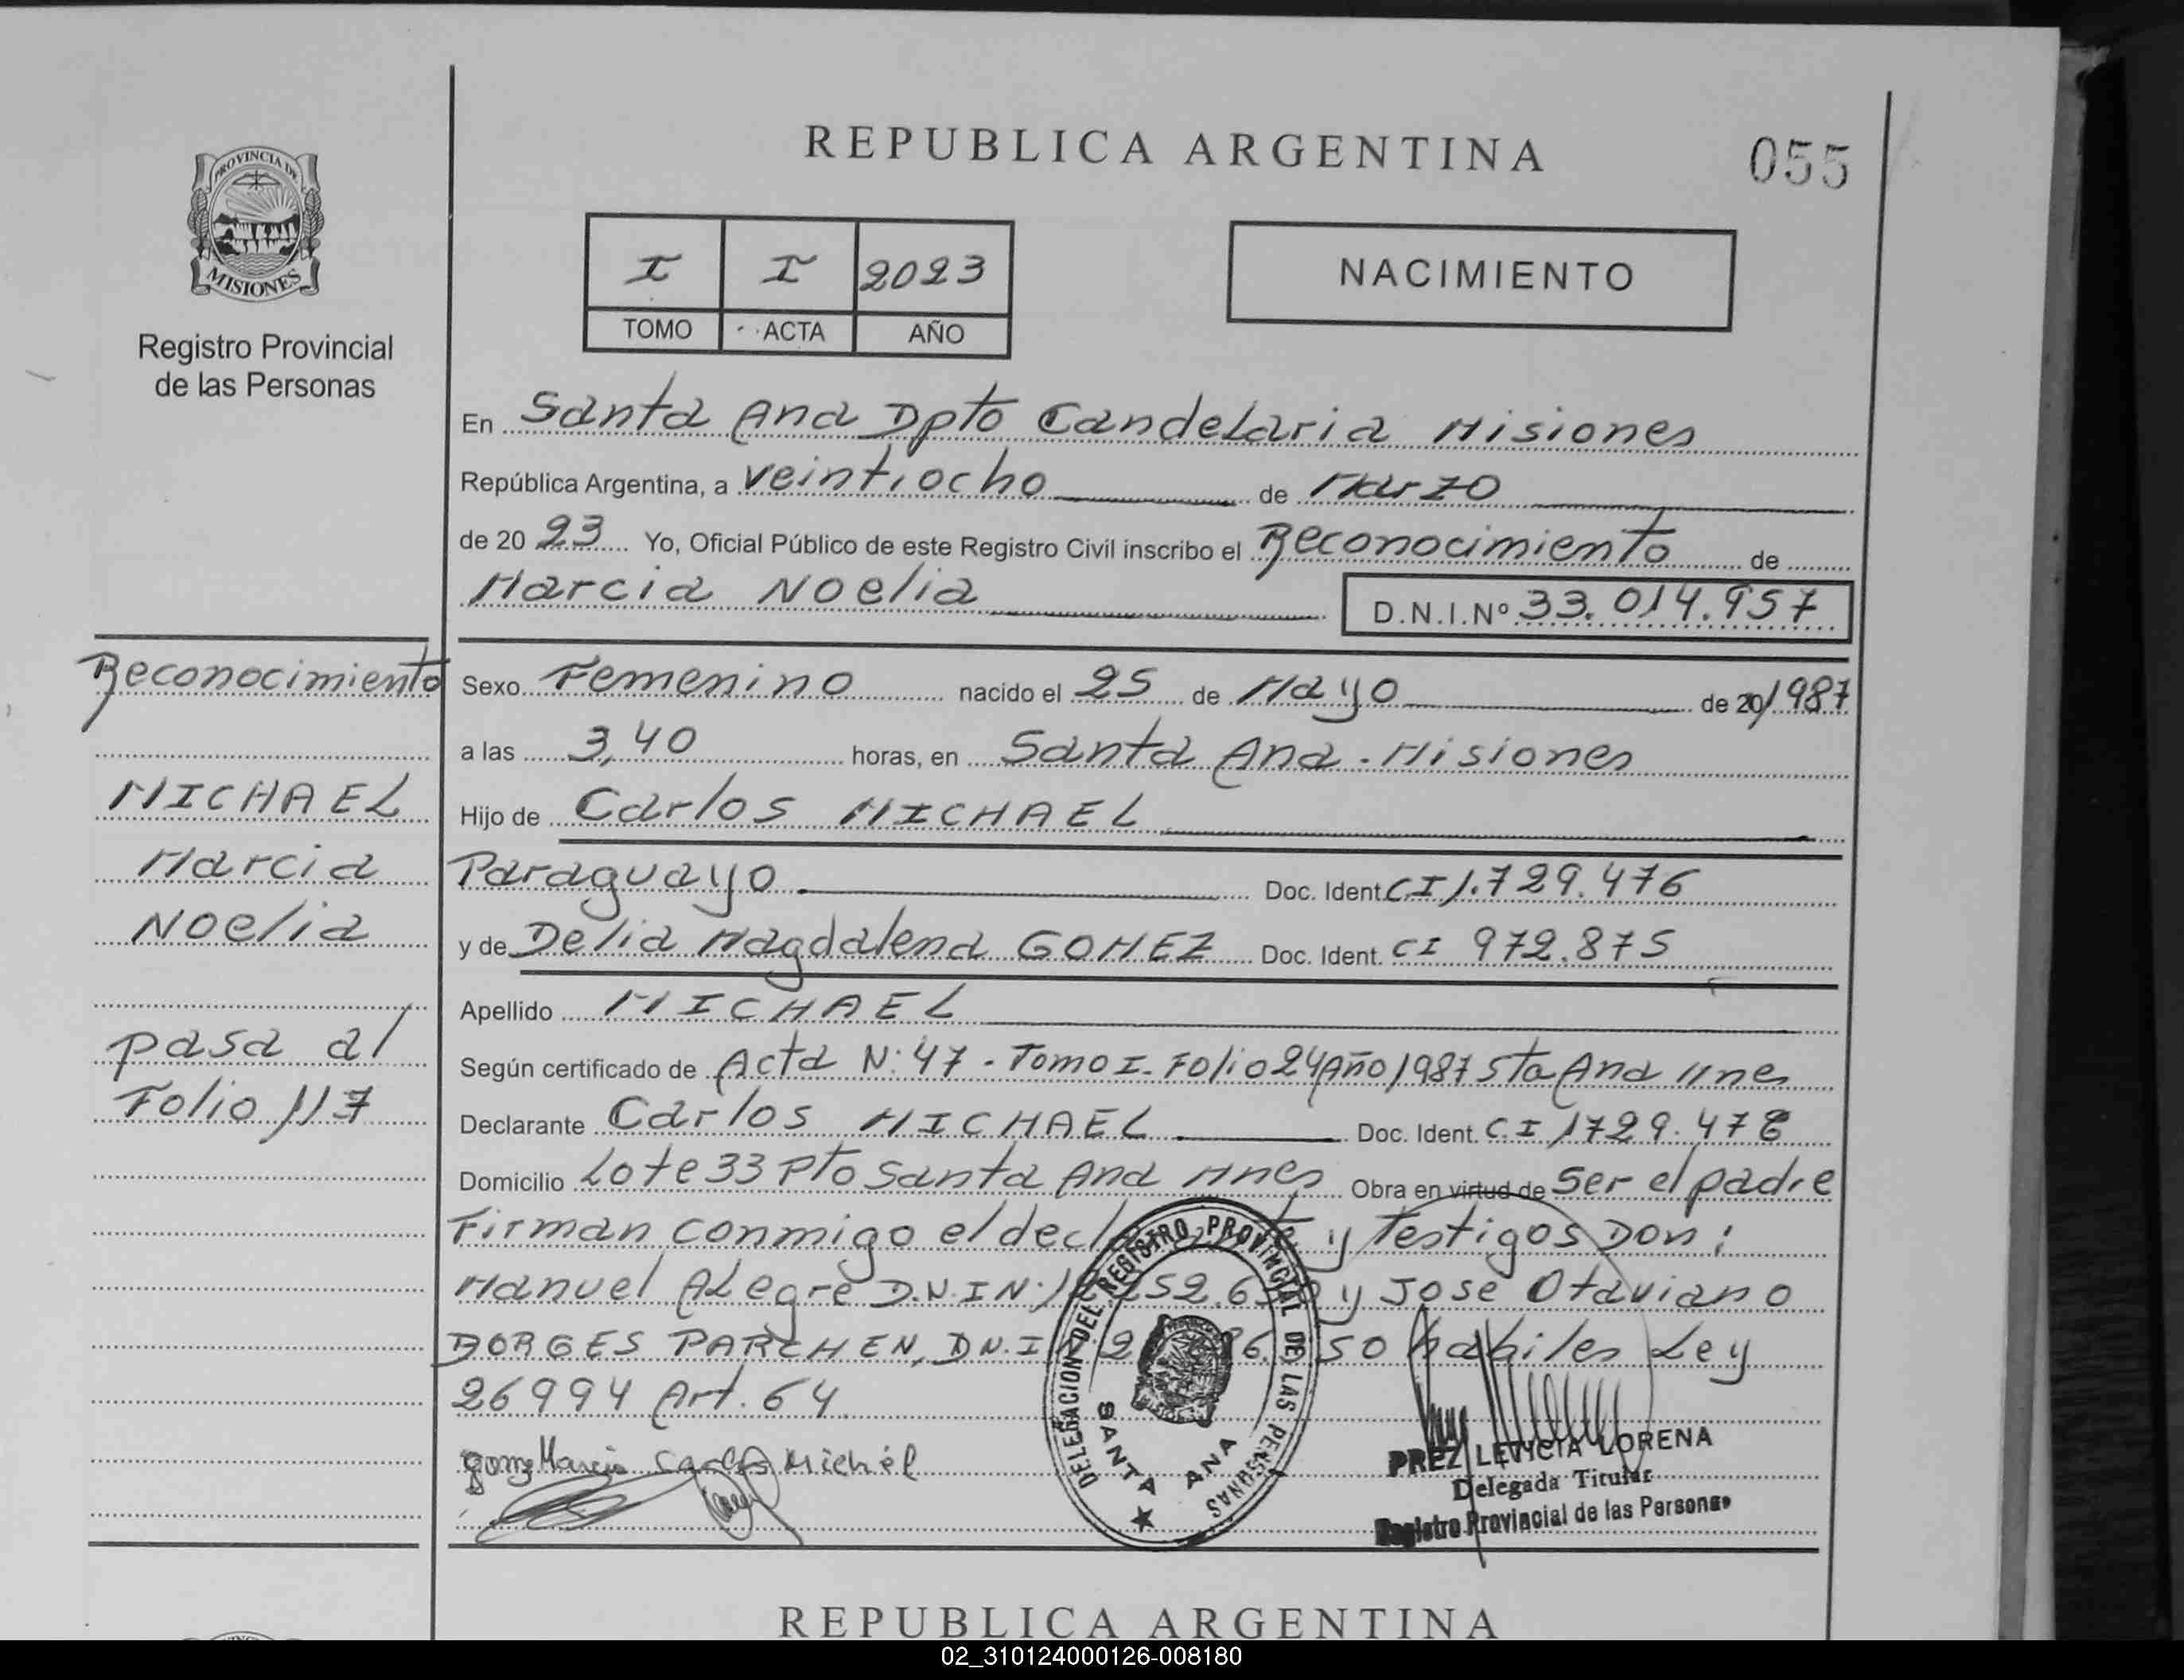 REPUBLICA ARGENTINA
055
PROVINCIA DE
MISIONES
Registro Provincial
de las Personas
I I 2023
TOMO ACTA AÑO
NACIMIENTO
En Santa Ana Dpto Candelaria Misiones
República Argentina, a veintiocho de Marzo
de 20 23 Yo, Oficial Público de este Registro Civil inscribo el Reconocimiento de
Marcia Noelia D.N.I.Nº 33.014.957
Reconocimiento
MICHAEL
Marcia
Noelia
pasa al
Folio 117
Sexo Femenino nacido el 25 de Mayo de 20/1987
a las 3,40 horas, en Santa Ana - Misiones
Hijo de Carlos MICHAEL
Paraguayo Doc. Ident. CI 1.729.476
y de Delia Magdalena GOMEZ Doc. Ident. CI 972.875
Apellido MICHAEL
Según certificado de Acta N: 47 - Tomo I - Folio 24 Año 1987 Sta Ana Mnes
Declarante Carlos MICHAEL Doc. Ident. C.I 1729.478
Domicilio Lote 33 Pto Santa Ana Mnes Obra en virtud de Ser el padre
Firman conmigo el y Testigos Don:
Manuel ALegre D.N.I N: y Jose Otaviano
BORGES PARCHEN, D.N.I habiles Ley
26994 Art. 64
Gomez Marcia Carlos Michel
DELEGACION DEL REGISTRO PROVINCIAL DE LAS PERSONAS
SANTA ANA
PREZ LETICIA LORENA
Delegada Titular
Registro Provincial de las Personas
REPUBLICA ARGENTINA
02_310124000126-008180